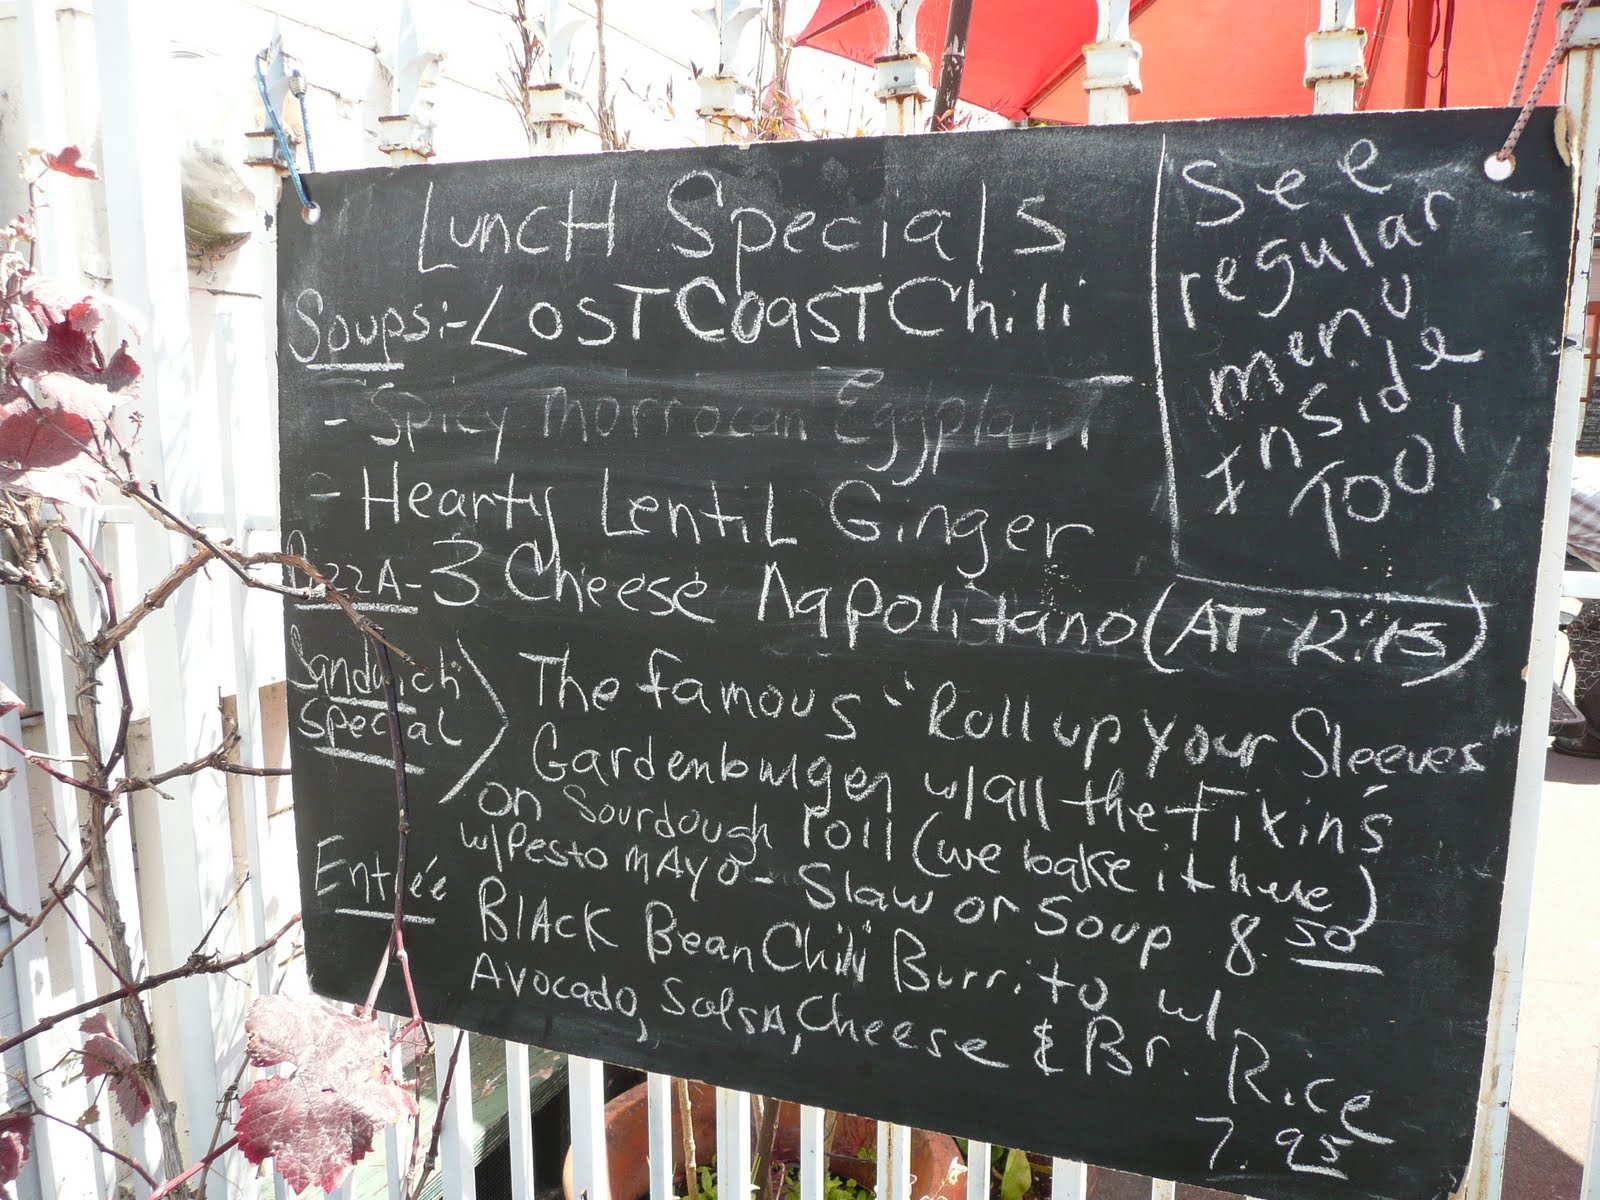 Lunch Specials
Soups:- Lost Coast Chili
- Spicy Morrocan Eggplant
- Hearty Lentil Ginger
Pizza - 3 Cheese Napolitano (AT 12:15)
Sandwich
Special
The famous "Roll up your Sleeves"
Gardenburger w/all the Fixins
on Sourdough roll (we bake it here)
w/Pesto MAYO - Slaw or Soup 8.50
Entrée
Black Bean Chili Burrito w/
Avocado, Salsa, Cheese & Br. Rice
7.95
See
regular
menu
Inside
Too!